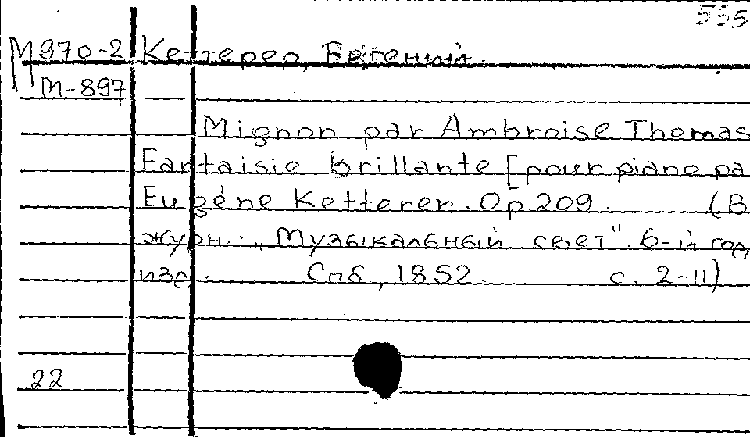 555
М970-2 Кеттерер, Евгений.
М-897
Mignon par Ambroise Thomas
Fantaisie brillante [pour piano pa
Eugéne Ketterer. Op 209. (В
журн. "Музыкальный свет". 6-й год
изд. Спб, 1852 с. 2-11)
22